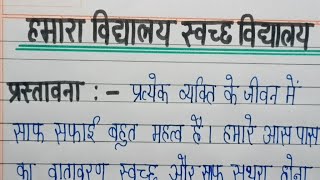 हमारा विद्यालय स्वच्छ विद्यालय
प्रस्तावना :- प्रत्येक व्यक्ति के जीवन में
साफ सफाई बहुत महत्व है। हमारे आस पास
का वातावरण स्वच्छ और साफ सुथरा होना